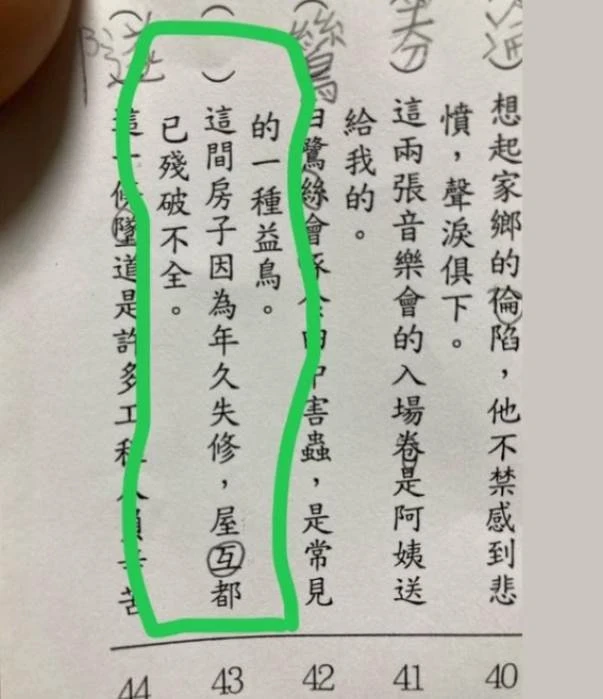 想起家鄉的倫陷，他不禁感到悲
憤，聲淚俱下。
40
（券）這兩張音樂會的入場卷是阿姨送
給我的。
41
（鷥）白鷺絲會啄食田中害蟲，是常見
的一種益鳥。
42
（）這間房子因為年久失修，屋互都
已殘破不全。
43
（隧）這一條墜道是許多工程人員辛苦
44